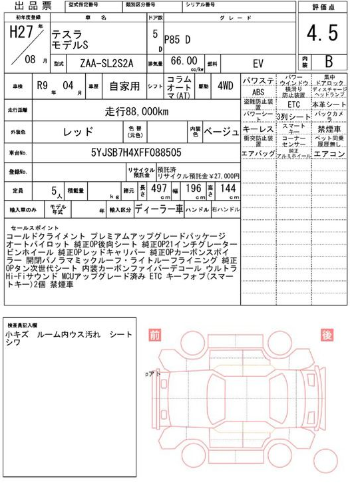 出品票
型式指定番号
類別区分番号
シリアル番号
評価点
初年度登録
車名
ドア数
グレード
H27年
08月
テスラ
モデルS
5
D
P85 D
4.5
内装
B
型式
ZAA-SL2S2A
排気量
66.00
cc/kw
燃料
EV
車検
R9年 04月
車歴
自家用
シフト
コラム
オート
マ(AT)
駆動
4WD
走行距離
走行88,000km
外装色
レッド
色替
(元色)
内装色
ベージュ
車台No.
5YJSB7H4XFF088505
登録No.
リサイクル
預託金
預託済
リサイクル預託金 ¥27,000円
定員
5人
積載量
kg
諸元
長さ
497
cm
幅
196
cm
高さ
144
cm
輸入車のみ
モデル
年式
年
輸入区分
ディーラー車
ハンドル
右ハンドル
パワステ
パワー
ウインドウ
集中
ドアロック
ABS
横滑り
防止装置
ディスチャージ
ヘッドランプ
盗難防止装置
ETC
本革シート
パワーシート
3列シート
バックカメラ
キーレス
スマート
キー
禁煙車
衝突防止装置
コーナー
センサー
ペット同乗
履歴無し
エアバッグ
純正
アルミホイール
エアコン
セールスポイント
コールドクライメント プレミアムアップグレードパッケージ
オートパイロット 純正OP後向シート 純正OP21インチグレーター
ビンホイール 純正OPレッドキャリパー 純正OPカーボンスポイ
ラー 開閉パノラミックルーフ・ライトルーフライニング 純正
OPタン次世代シート 内装カーボンファイバーデコール ウルトラ
Hi-Fiサウンド MCUアップグレード済み ETC キーフォブ(スマー
トキー)2個 禁煙車
検査員記入欄
小キズ ルーム内ウス汚れ シート
シワ
前
後